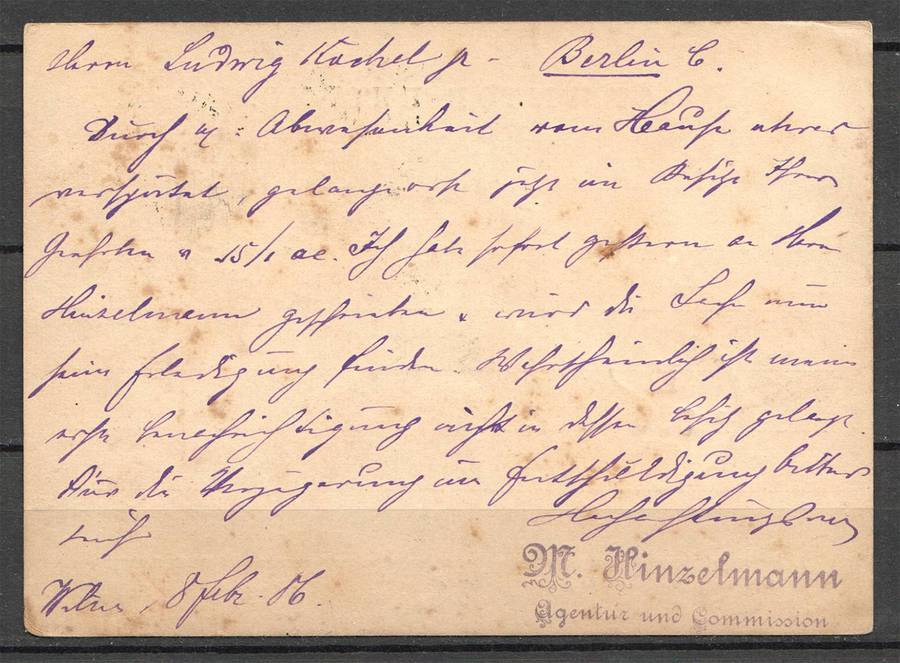 Herrn Ludwig Kachel jr - Berlin C.
Durch m. Abwesenheit vom Hause etwas
verspätet, gelange erst jetzt in Besitz Ihres
Geehrten v 15/1 ac. Ich habe sofort gestern an Herrn
Hinzelmann geschrieben & wird die Sache nun
seine Erledigung finden. Wahrscheinlich ist meine
erste Benachrichtigung nicht in dessen Besitz gelangt.
Für die Verzögerung um Entschuldigung bittend
Hochachtungsvoll
Wilna, 8 Febr. 86.
M. Hinzelmann
Agentur und Commission